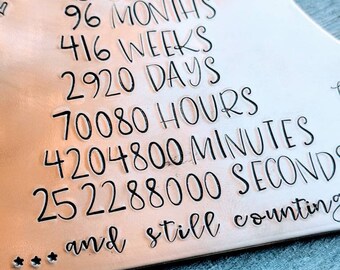 96 MONTHS
416 WEEKS
2920 DAYS
70080 HOURS
4204800 MINUTES
252288000 SECONDS
... and still counting